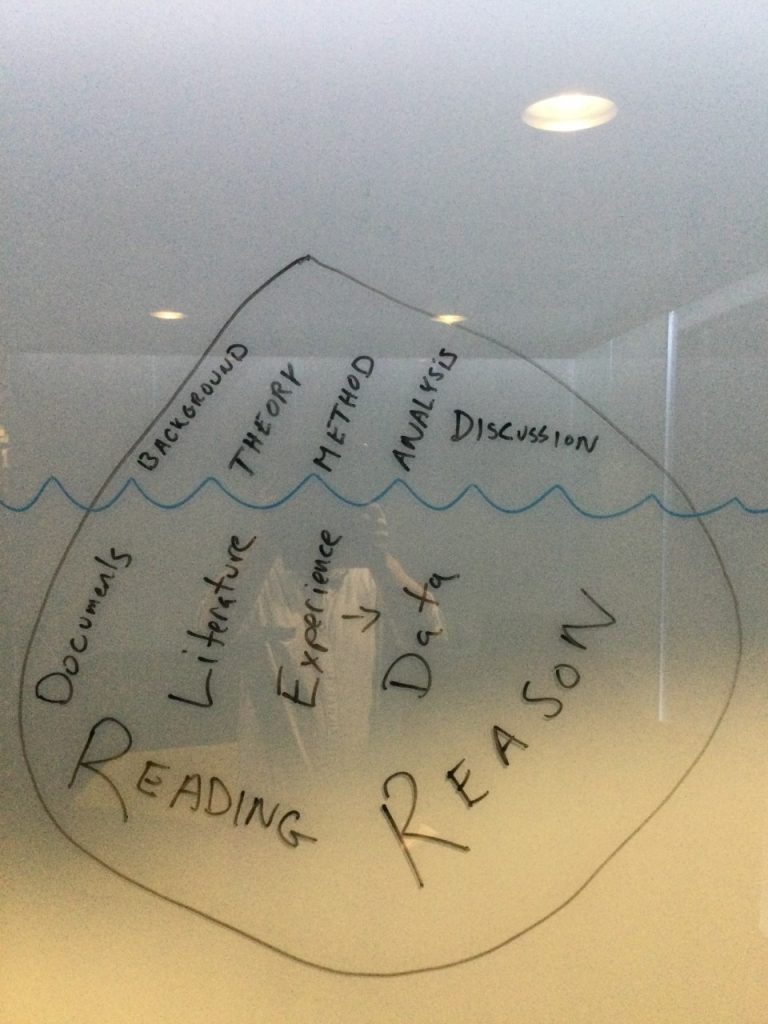 BACKGROUND
THEORY
METHOD
ANALYSIS
DISCUSSION
Documents
Literature
Experience
Data
READING
REASON